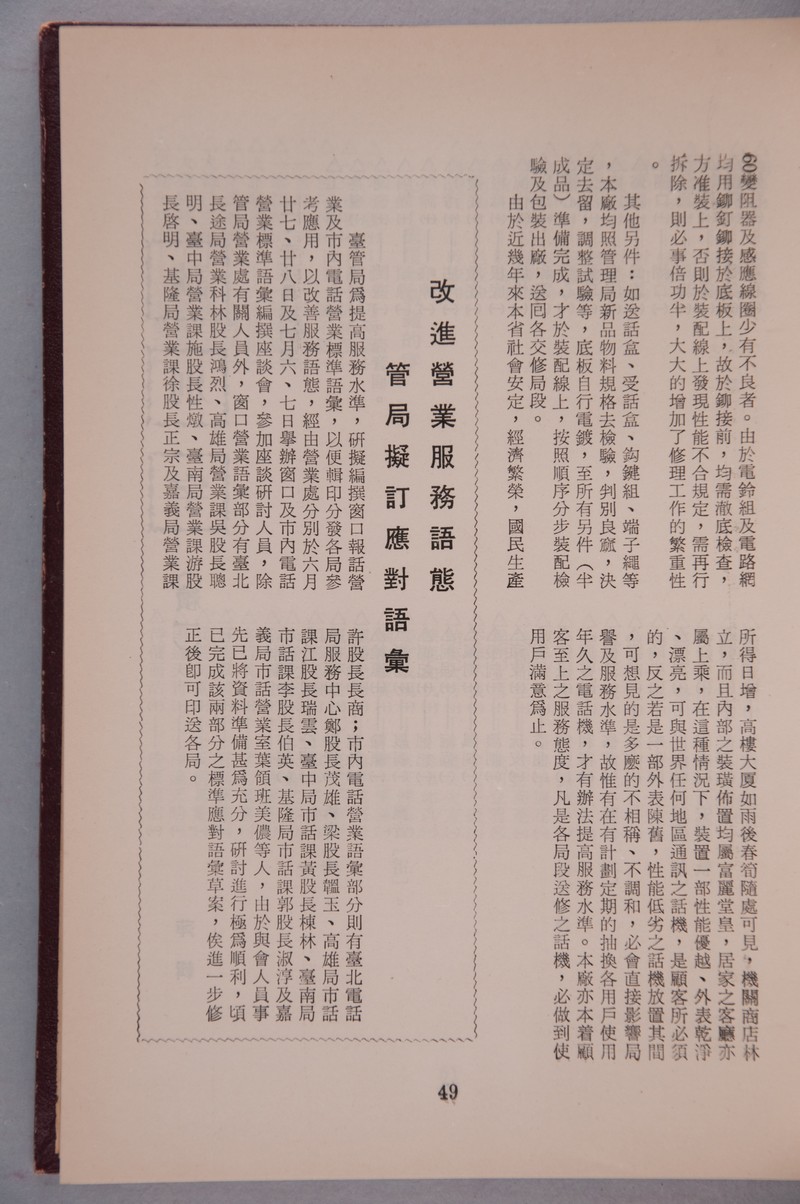 60變阻器及感應線圈少有不良者。由於電鈴組及電路網
均用鉚釘鉚接於底板上，故於鉚接前，均需澈底檢查，
方准裝上，否則於裝配線上發現性能不合規定，需再行
拆除，則必事倍功半，大大的增加了修理工作的繁重性
。
其他另件：如送話盒、受話盒、鈎鍵組、端子繩等
，本廠均照管理局新品物料規格去檢驗，判別良窳，決
定去留，調整試驗等，底板自行電鍍，至所有另件（半
成品）準備完成，才於裝配線上，按照順序分步裝配檢
驗及包裝出廠，送回各交修局段。
由於近幾年來本省社會安定，經濟繁榮，國民生產
所得日增，高樓大厦如雨後春筍隨處可見，機關商店林
立，而且內部之裝璜佈置均屬富麗堂皇，居家之客廳亦
屬上乘，在這種情況下，裝置一部性能優越、外表乾淨
、漂亮，可與世界任何地區通訊之話機，是顧客所必須
的，反之若是一部外表陳舊，性能低劣之話機放置其間
，可想見的是多麽的不相稱、不調和，必會直接影響局
譽及服務水準，故惟有在有計劃定期的抽換各用戶使用
年久之電話機，才有辦法提高服務水準。本廠亦本着顧
客至上之服務態度，凡是各局段送修之話機，必做到使
用戶滿意爲止。
改進營業服務語態
管局擬訂應對語彙
臺管局爲提高服務水準，研擬編撰窗口報話營
業及市內電話營業標準語彙，以便輯印分發各局參
考應用，以改善服務語態，經由營業處分別於六月
廿七、廿八日及七月六、七日舉辦窗口及市內電話
營業標準語彙編撰座談會，參加座談研討人員，除
管局營業處有關人員外，窗口營業語彙部分有臺北
長途局營業科林股長鴻烈、高雄局營業課吳股長聰
明、臺中局營業課施股長性燉、臺南局營業課游股
長啓明、基隆局營業課徐股長正宗及嘉義局營業課
許股長長商；市內電話營業語彙部分則有臺北電話
局服務中心鄭股長茂雄、梁股長韞玉、高雄局市話
課江股長瑞雲、臺中局市話課黃股長棟林、臺南局
市話課李股長伯英、基隆局市話課郭股長淑淳及嘉
義局市話營業室葉領班美儂等人，由於與會人員事
先已將資料準備甚爲充分，研討進行極爲順利，頃
已完成該兩部分之標準應對語彙草案，俟進一步修
正後卽可印送各局。
49